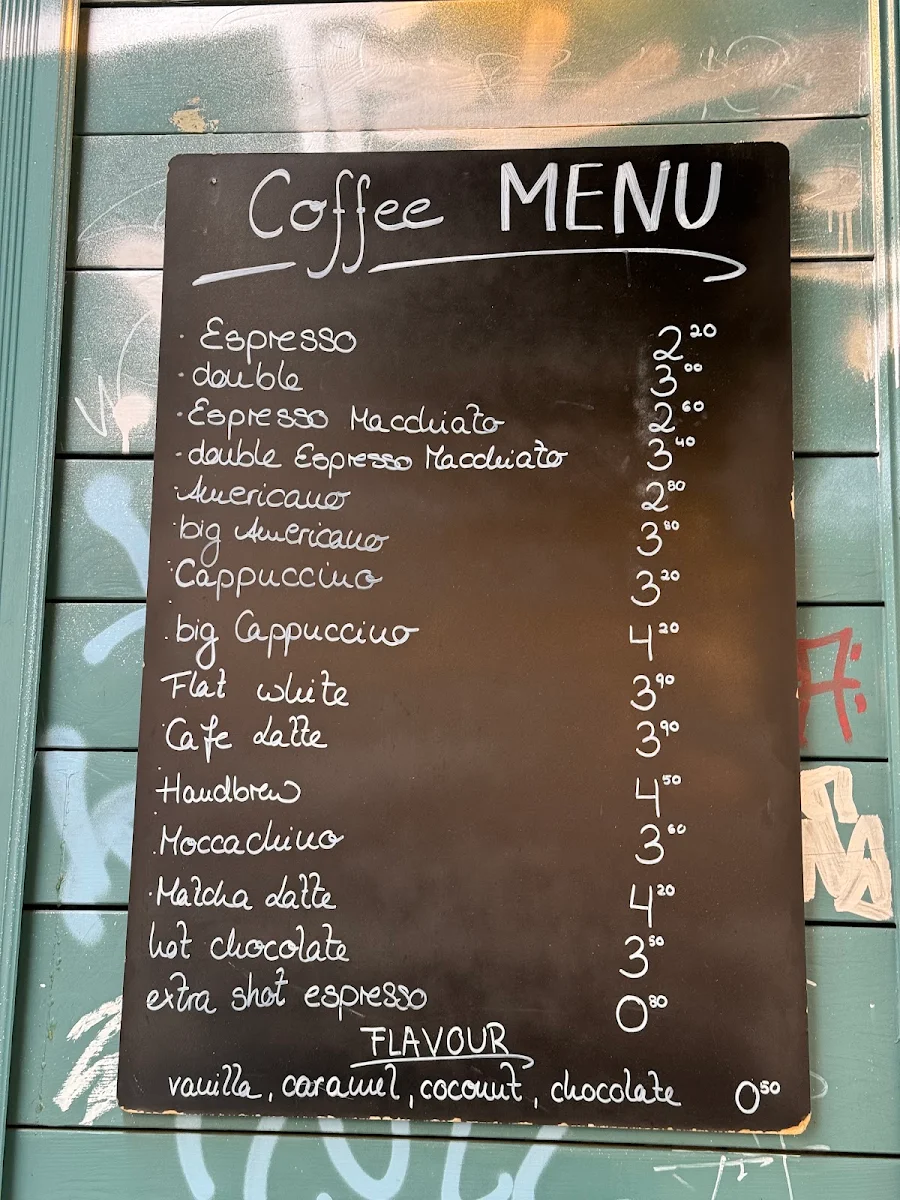 Coffee MENU
· Espresso 2 20
· double 3 00
· Espresso Macchiato 2 60
· double Espresso Macchiato 3 40
· Americano 2 80
· big Americano 3 80
· Cappuccino 3 20
· big Cappuccino 4 20
Flat white 3 90
· Cafe Latte 3 90
Handbrew 4 50
· Moccachino 3 60
· Matcha Latte 4 20
hot chocolate 3 50
extra shot espresso 0 80
FLAVOUR
vanilla, caramel, coconut, chocolate 0 50